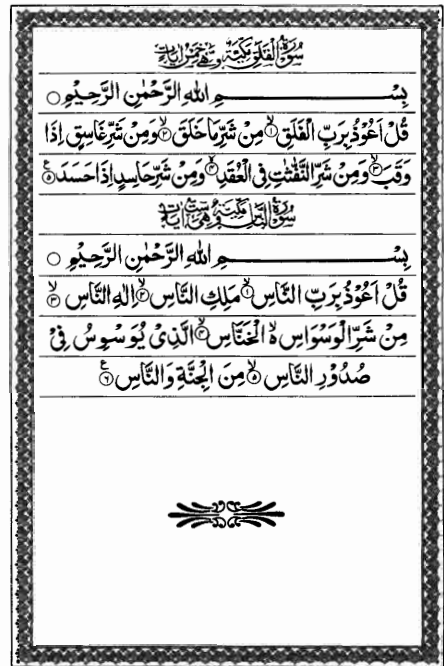 سُوْرَةُ الْفَلَقِ مَكِّيَّةٌ وَّهِيَ خَمْسُ اٰيَاتٍ
بِسْـــــــــمِ اللهِ الرَّحْمٰنِ الرَّحِيْمِ ○
قُلْ اَعُوْذُ بِرَبِّ الْفَلَقِ ۙ﴿۱﴾ مِنْ شَرِّ مَا خَلَقَ ۙ﴿۲﴾ وَمِنْ شَرِّ غَاسِقٍ اِذَا
وَقَبَ ۙ﴿۳﴾ وَمِنْ شَرِّ النَّفّٰثٰتِ فِى الْعُقَدِ ۙ﴿۴﴾ وَمِنْ شَرِّ حَاسِدٍ اِذَا حَسَدَ ﴿۵﴾ ع
سُوْرَةُ النَّاسِ مَكِّيَّةٌ وَّهِيَ سِتُّ اٰيَاتٍ
بِسْـــــــــمِ اللهِ الرَّحْمٰنِ الرَّحِيْمِ ○
قُلْ اَعُوْذُ بِرَبِّ النَّاسِ ۙ﴿۱﴾ مَلِكِ النَّاسِ ۙ﴿۲﴾ اِلٰهِ النَّاسِ ۙ﴿۳﴾
مِنْ شَرِّ الْوَسْوَاسِ ەۙ الْخَنَّاسِ ۙ﴿۴﴾ الَّذِىْ يُوَسْوِسُ فِىْ
صُدُوْرِ النَّاسِ ۙ﴿۵﴾ مِنَ الْجِنَّةِ وَالنَّاسِ ﴿۶﴾ ع